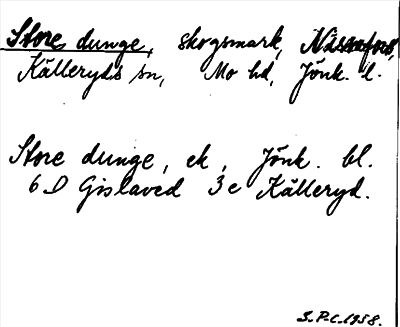 Store dunge, skogsmark, Nissafors,
Kålleryds sn, Mo hd, Jönk. l.
Store dunge, ek, Jönk. bl.
6 D Gislaved 3 e Kålleryd.
S.P-l. 1958.